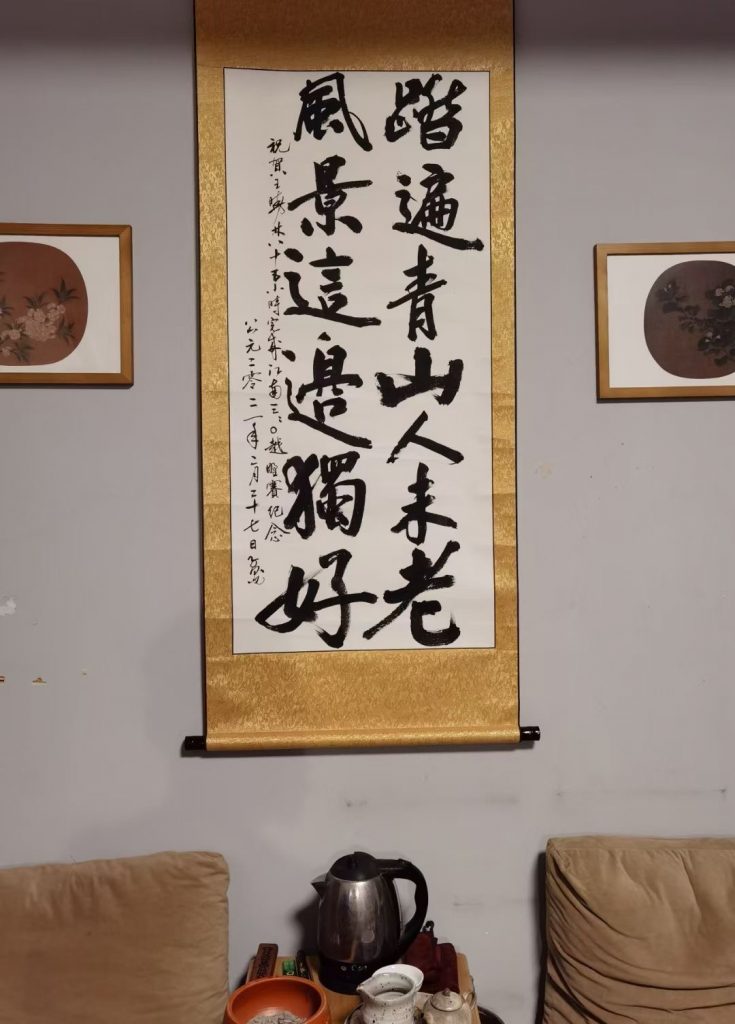 踏遍青山人未老
風景這邊獨好
祝賀王曉林八十五小時完成江南三〇〇越野賽紀念
公元二零二一年二月二十七日